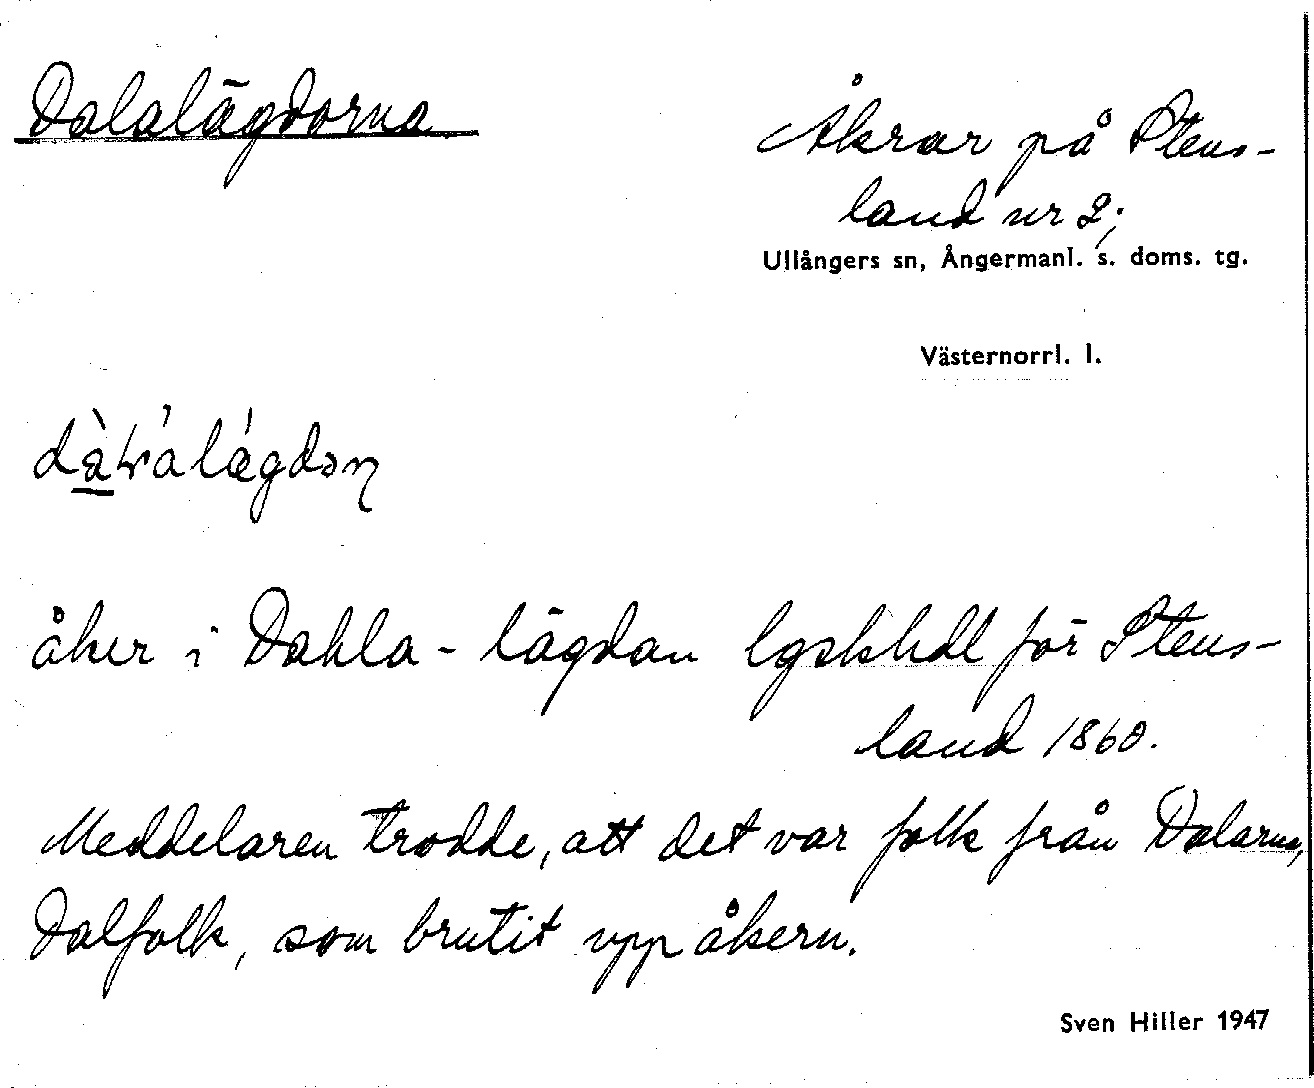 Dalalägdorna
Åkrar på Stens-
land nr 2;
Ullångers sn, Ångermanl. s. doms. tg.
Västernorrl. l.
åker i Dahla-lägdan lgskhdl för Stens-
land 1860.
Meddelaren trodde, att det var folk från Dalarna,
Dalfolk, som brutit upp åkern.
Sven Hiller 1947